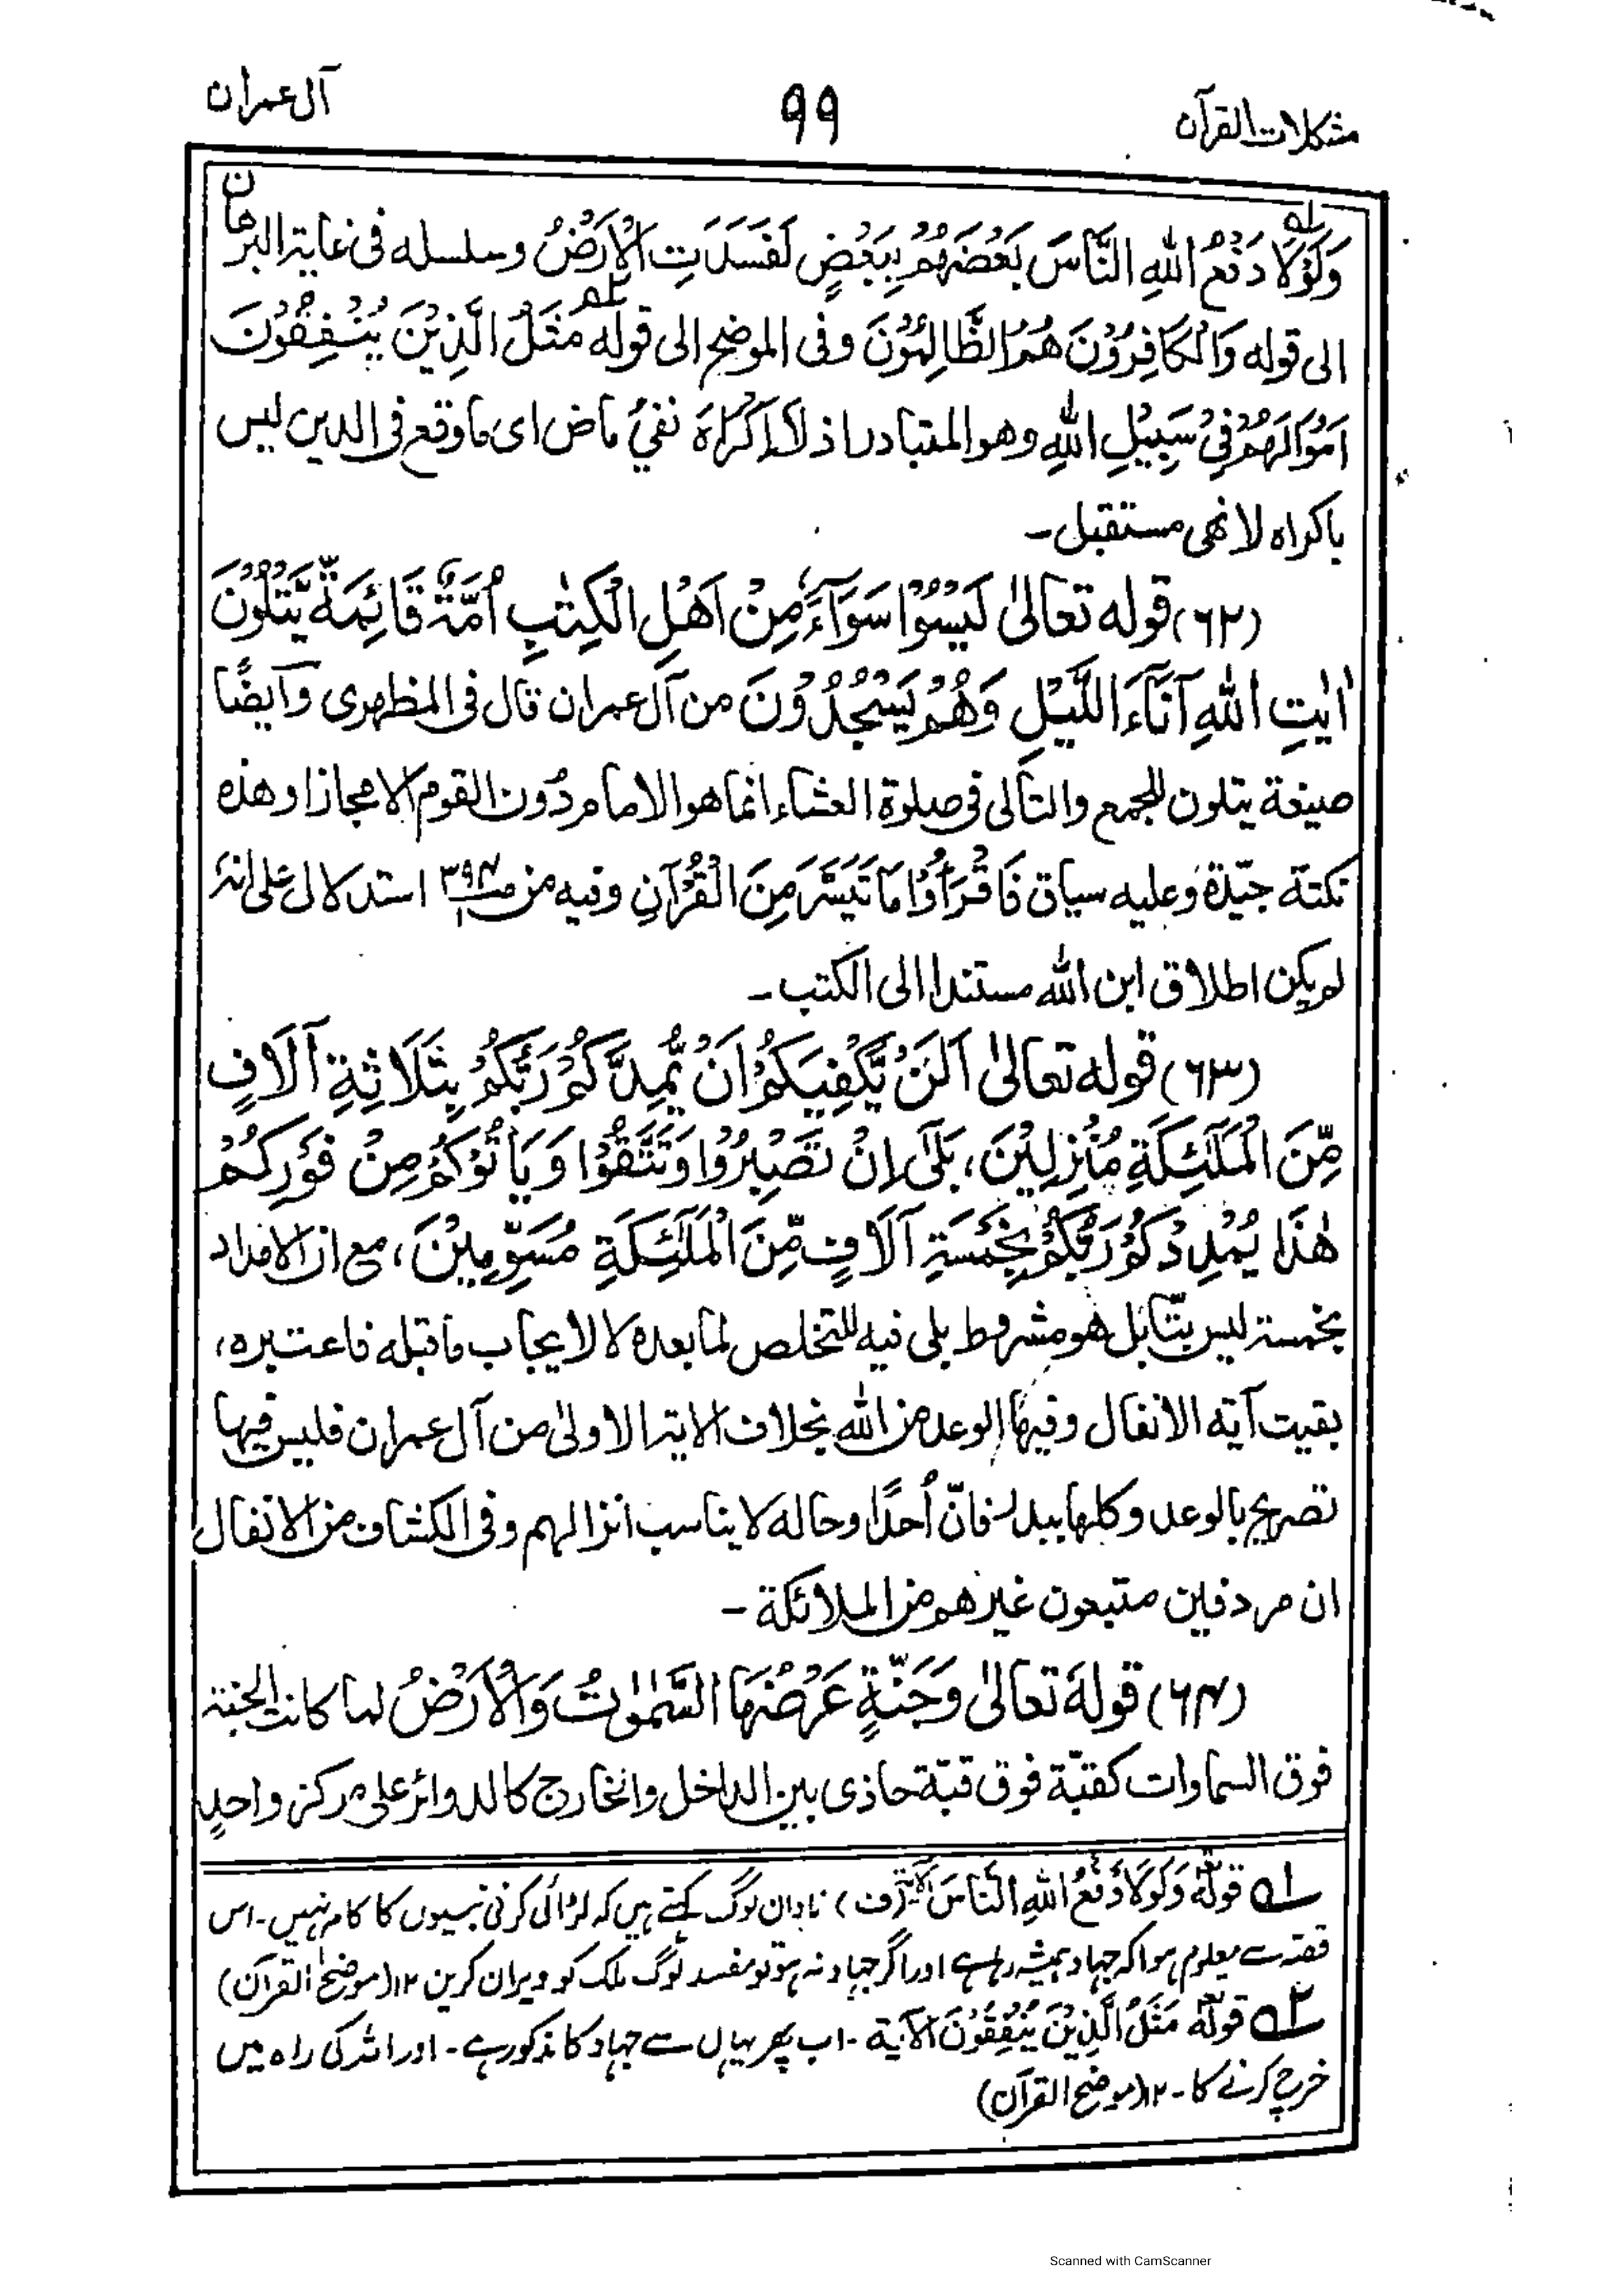 مشكلات القرآن
۹۹
آل عمران
وَلَوْلَا دَفْعُ اللهِ النَّاسَ بَعْضَهُمْ بِبَعْضٍ لَفَسَدَتِ الْاَرْضُ وسلسله فى غاية البرهان
الى قوله وَالْكَافِرُوْنَ هُمُ الظَّالِمُوْنَ وفى الموضح الى قوله مَثَلُ الَّذِيْنَ يُنْفِقُوْنَ
اَمْوَالَهُمْ فِىْ سَبِيْلِ اللهِ وهو المتبادر اذ لَا اِكْرَاهَ نفيُ ماض اى ما وقع فى الدين ليس
باكراه لا نهى مستقبل۔
(۶۲) قوله تعالىٰ لَيْسُوْا سَوَآءً مِنْ اَهْلِ الْكِتٰبِ اُمَّةٌ قَائِمَةٌ يَّتْلُوْنَ
اٰيٰتِ اللهِ آنَآءَ اللَّيْلِ وَهُمْ يَسْجُدُوْنَ من آل عمران قال فى المظهرى وآيضًا
صيغة يتلون للجمع والتالى فى صلوة العشاء انما هو الامام دُون القوم الا مجازا وهذه
نكتة جيّدة وعليه سياق فَاقْرَأُوْا مَا تَيَسَّرَ مِنَ الْقُرْآنِ وفيه من ص۳۹۴ ۱ استدلال على انه
لم يكن اطلاق ابن الله مستندا الى الكتب۔
(۶۳) قوله تعالىٰ اَلَنْ يَّكْفِيَكُمْ اَنْ يُّمِدَّكُمْ رَبُّكُمْ بِثَلَاثَةِ آلَافٍ
مِّنَ الْمَلٰٓئِكَةِ مُنْزِلِيْنَ، بَلٰٓى اِنْ تَصْبِرُوْا وَتَتَّقُوْا وَيَأْتُوْكُمْ مِنْ فَوْرِكُمْ
هٰذَا يُمْدِدْكُمْ رَبُّكُمْ بِخَمْسَةِ آلَافٍ مِّنَ الْمَلٰٓئِكَةِ مُسَوِّمِيْنَ، مع ان الامداد
بخمسة ليس بتّا بل هو مشروط بلى فيه للتخلص لما بعده لا لايجاب ما قبله فاعتبره،
بقيت آية الانفال وفيها الوعد من الله بخلاف الاية الاولىٰ من آل عمران فليس فيها
تصريح بالوعد وكلها ببدر فانّ اُحدًا وحاله لا يناسب انزالهم وفى الكشاف من الانفال
ان مردفين متبعون غيرهم من الملائكة۔
(۶۴) قولهَ تعالىٰ وَجَنَّةٍ عَرْضُهَا السَّمٰوٰتُ وَالْاَرْضُ لما كانت الجنة
فوق السماوات كقبّة فوق قبّة حاذى بين الداخل والخارج كالدوائر على مركز واحدٍ
۱ه قوله وَلَوْلَا دَفْعُ اللهِ النَّاسَ الآية (ف) نادان لوگ کہتے ہیں کہ لڑائی کرنی نبیوں کا کام نہیں۔ اس
قصّہ سے معلوم ہوا کہ جہاد ہمیشہ رہا ہے اور اگر جہاد نہ ہو تو مفسد لوگ ملک کو ویران کریں ۱۲ (موضح القرآن)
۲ه قوله مَثَلُ الَّذِيْنَ يُنْفِقُوْنَ الآية۔ اب پھر یہاں سے جہاد کا مذکور ہے۔ اور اللہ کی راہ میں
خرچ کرنے کا۔ ۱۲ (موضح القرآن)
Scanned with CamScanner